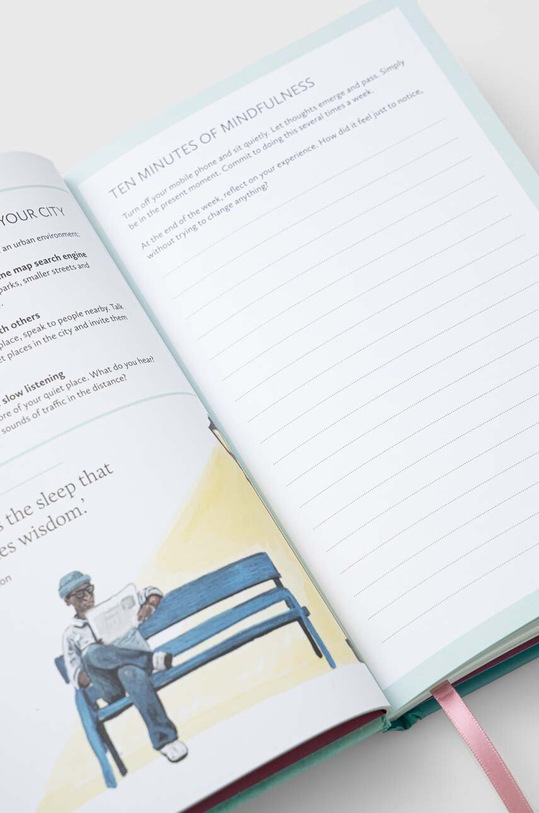 YOUR CITY
an urban environment:
map search engine
parks, smaller streets and
others
place, speak to people nearby. Talk
places in the city and invite them
slow listening
of your quiet place. What do you hear?
sounds of traffic in the distance?
the sleep that
wisdom.'
TEN MINUTES OF MINDFULNESS
Turn off your mobile phone and sit quietly. Let thoughts emerge and pass. Simply
be in the present moment. Commit to doing this several times a week.
At the end of the week, reflect on your experience. How did it feel just to notice,
without trying to change anything?